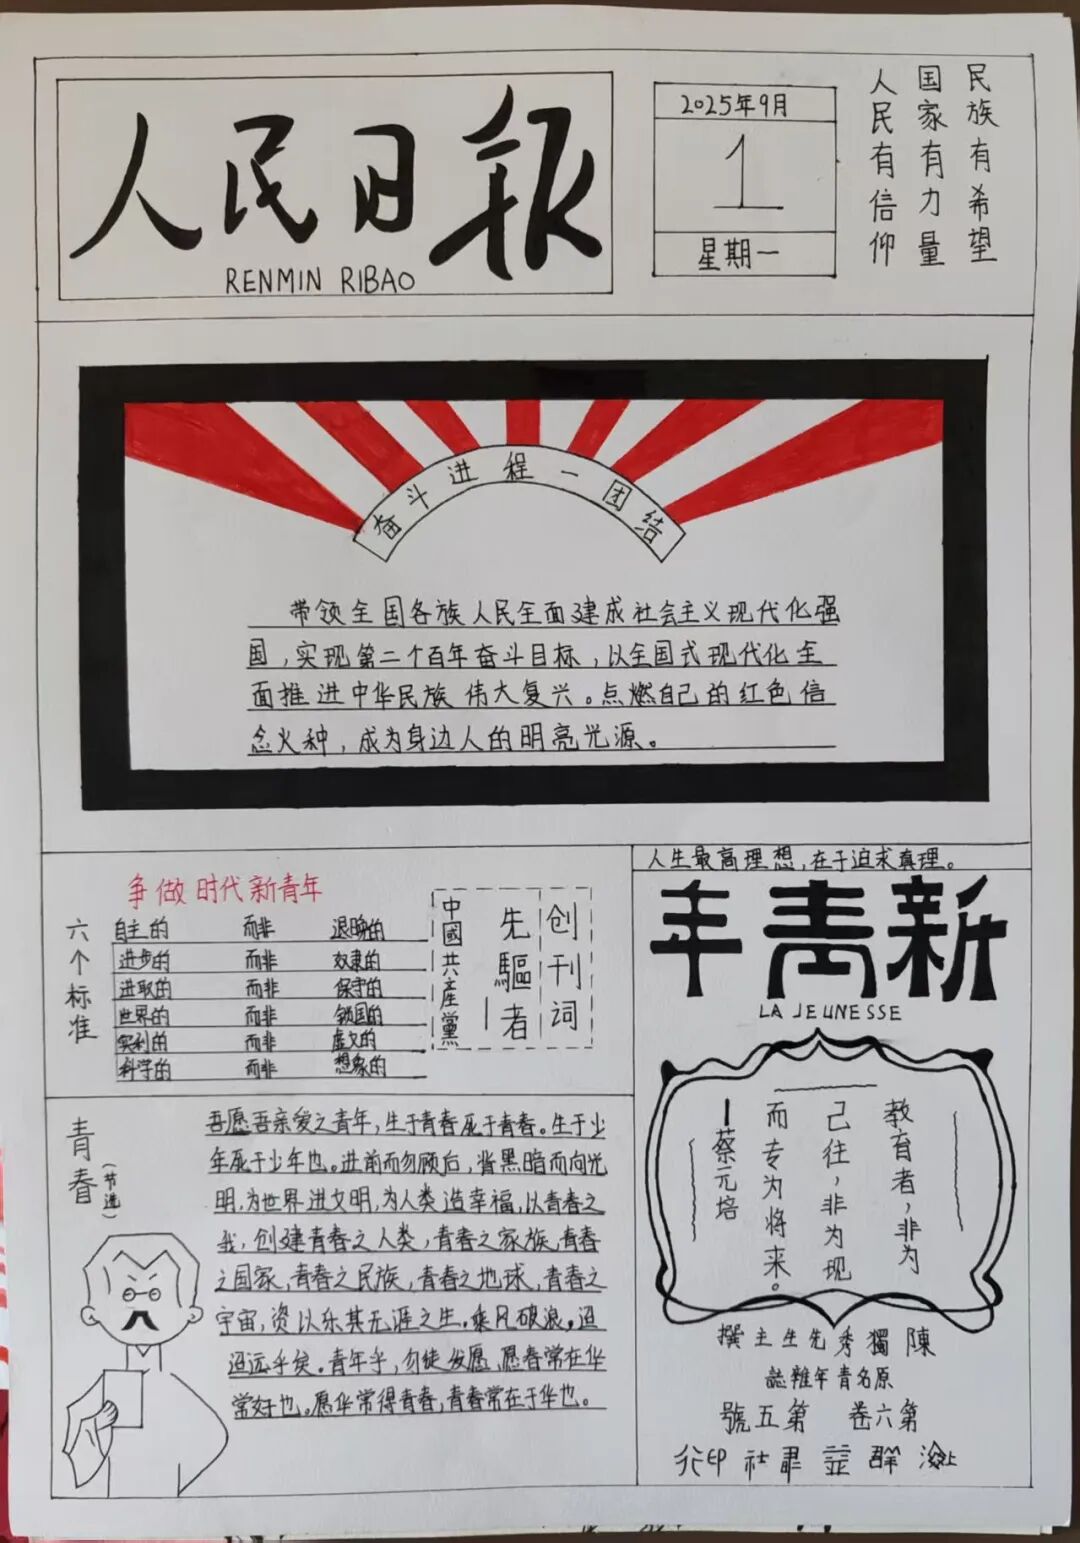 人民日报
RENMIN RIBAO
2025年9月
1
星期一
民族有希望
国家有力量
人民有信仰
奋斗进程一团结
带领全国各族人民全面建成社会主义现代化强
国，实现第二个百年奋斗目标，以全国式现代化全
面推进中华民族伟大复兴。点燃自己的红色信
念火种，成为身边人的明亮光源。
争做时代新青年
六个标准
自主的 而非 退晚的
进步的 而非 奴隶的
进取的 而非 保守的
世界的 而非 锁国的
实利的 而非 虚文的
科学的 而非 想象的
创刊词
先驅者
中國共產黨
人生最高理想，在于追求真理。
新青年
LA JEUNESSE
教育者，非为
己往，非为现
而专为将来。
一蔡元培
陳獨秀先生主撰
原名青年雜誌
第六卷 第五號
上海群益書社印行
青春
（节选）
吾愿吾亲爱之青年，生于青春死于青春。生于少
年死于少年也。进前而勿顾后，背黑暗而向光
明，为世界进文明，为人类造幸福，以青春之
我，创建青春之人类，青春之家族，青春
之国家，青春之民族，青春之地球，青春之
宇宙，资以乐其无涯之生。乘风破浪。迢
迢远乎矣。青年乎，勿徒发愿，愿春常在华
常好也。愿华常得青春，青春常在于华也。